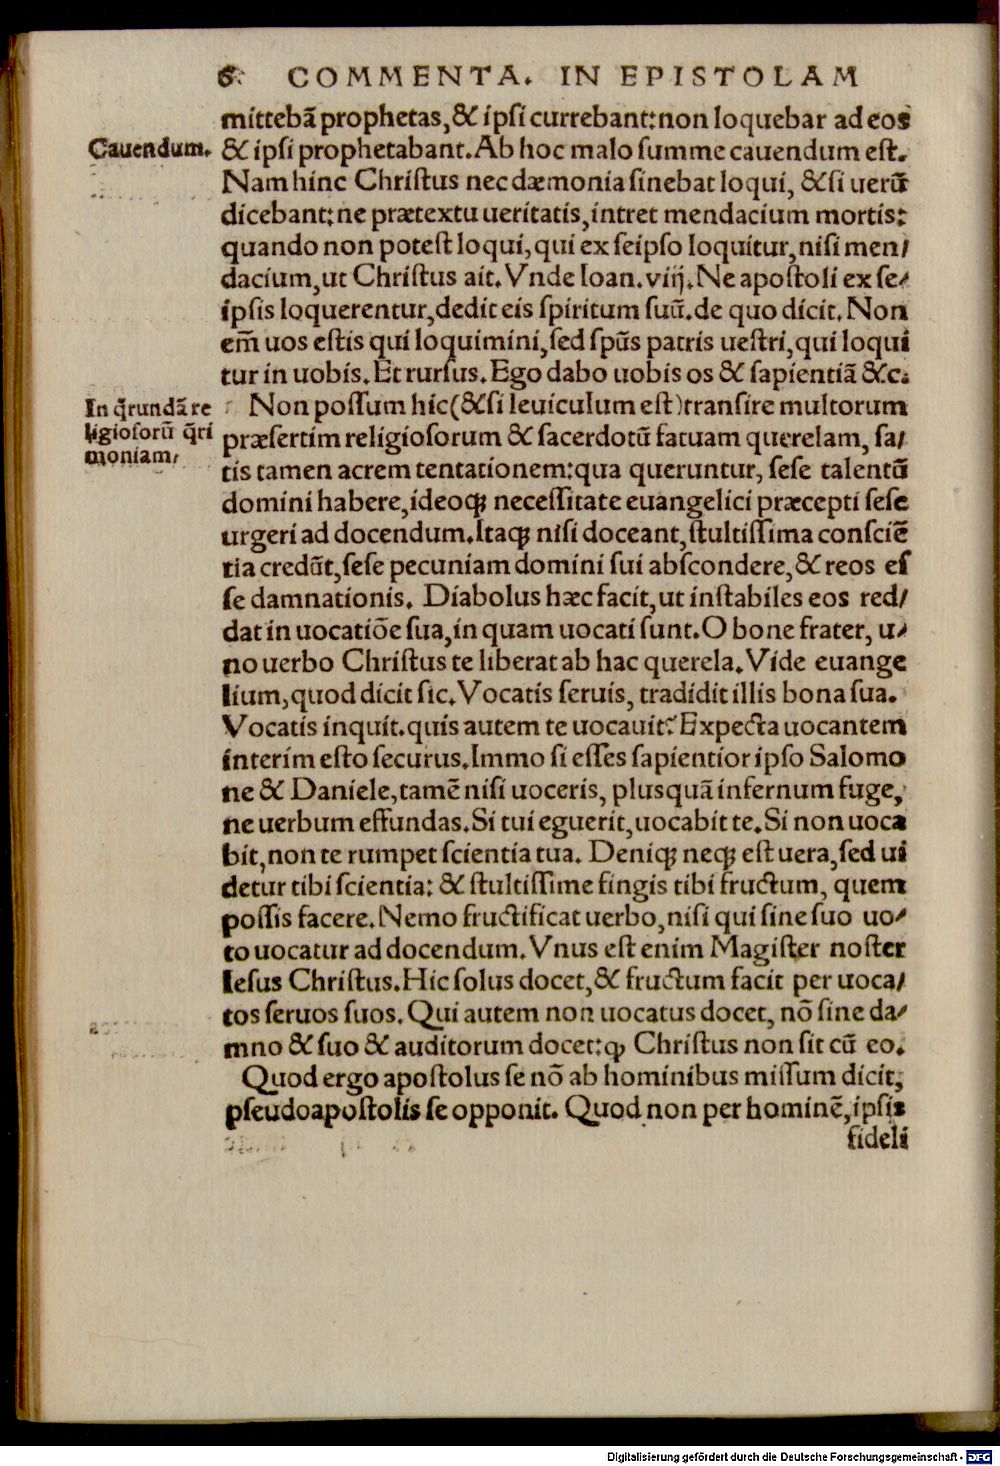 6 COMMENTA. IN EPISTOLAM
mittebã prophetas,& ipsi currebant:non loquebar ad eos
Cauendum.
& ipsi prophetabant.Ab hoc malo summe cauendum est.
Nam hinc Christus nec dæmonia sinebat loqui, &si uerũ
dicebant:ne prætextu ueritatis,intret mendacium mortis:
quando non potest loqui,qui ex seipso loquitur,nisi men/
dacium,ut Christus ait.Vnde Ioan.viij.Ne apostoli ex se/
ipsis loquerentur,dedit eis spiritum suũ.de quo dicit.Non
em̃ uos estis qui loquimini,sed spũs patris uestri,qui loqui
tur in uobis.Et rursus.Ego dabo uobis os & sapientiã &c.
In q̃rundã re
ligiosorũ q̃ri
moniam/
Non possum hic(&si leuiculum est)transire multorum
præsertim religiosorum & sacerdotũ fatuam querelam, sa/
tis tamen acrem tentationem:qua queruntur, sese talentũ
domini habere,ideoqꝫ necessitate euangelici præcepti sese
urgeri ad docendum.Itaqꝫ nisi doceant,stultissima consciẽ
tia credũt,sese pecuniam domini sui abscondere,& reos es
se damnationis. Diabolus hæc facit,ut instabiles eos red/
dat in uocatiõe sua,in quam uocati sunt.O bone frater, u/
no uerbo Christus te liberat ab hac querela.Vide euange
lium,quod dicit sic.Vocatis seruis, tradidit illis bona sua.
Vocatis inquit.quis autem te uocauit?Expecta uocantem
interim esto securus.Immo si esses sapientior ipso Salomo
ne & Daniele,tamẽ nisi uoceris, plusquã infernum fuge,
ne uerbum effundas.Si tui eguerit,uocabit te.Si non uoca
bit,non te rumpet scientia tua. Deniqꝫ neqꝫ est uera,sed ui
detur tibi scientia: & stultissime fingis tibi fructum, quem
possis facere.Nemo fructificat uerbo,nisi qui sine suo uo/
to uocatur ad docendum.Vnus est enim Magister noster
Iesus Christus.Hic solus docet,& fructum facit per uoca/
tos seruos suos.Qui autem non uocatus docet, nõ sine da/
mno & suo & auditorum docet:ꝙ Christus non sit cũ eo.
Quod ergo apostolus se nõ ab hominibus missum dicit,
pseudoapostolis se opponit. Quod non per hominẽ,ipsis
fideli
Digitalisierung gefördert durch die Deutsche Forschungsgemeinschaft - DFG